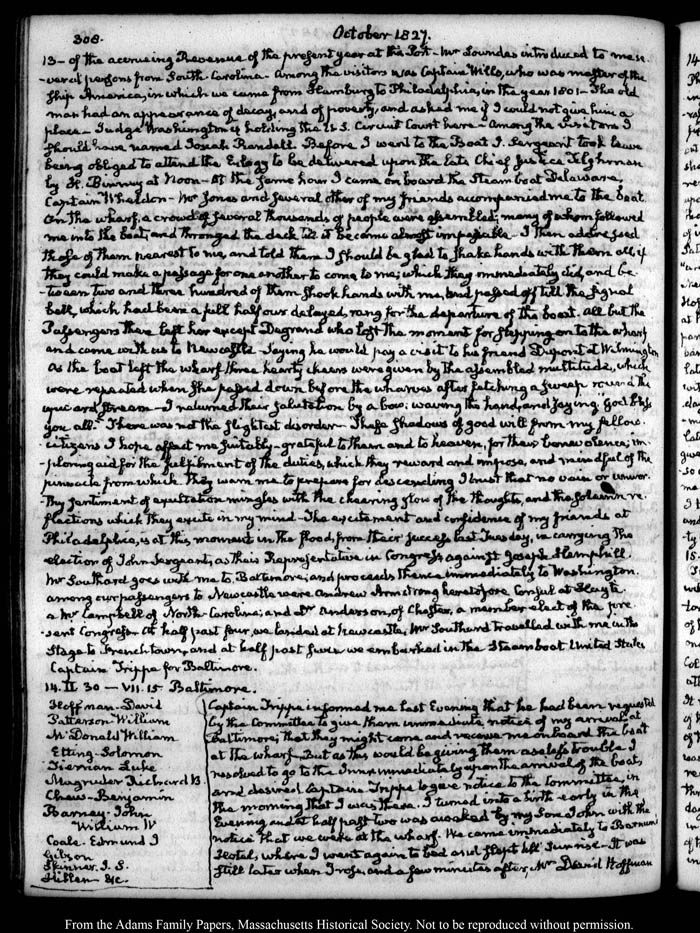 308.
October 1827.
13- of the accruing Revenue of the present year at this Port- Mr Lowndes introduced to me se-
-veral persons from South-Carolina- Among the visitors was Captain Wills, who was master of the
Ship America, in which we came from Hamburg to Philadelphia, in the year 1801- The old
man had an appearance of decay, and of poverty, and asked me if I could not give him a
place- Judge Washington is holding the U.S. Circuit Court here- Among the visitors I
should have named Josiah Randall. Before I went to the Boat J. Sergeant took leave
being obliged to attend the Eulogy to be delivered upon the late Chief Justice Tilghman
by H. Binney at Noon- At the same hour I came on board the Steam boat Delaware,
Captain Whelden- Mr Jones and several other of my friends accompanied me to the boat
On the wharf, a crowd of several thousands of people were assembled; many of whom followed
me into the boat, and thronged the deck till it became almost impassable- I then addressed
those of them nearest to me, and told them I should be glad to shake hands with them all, if
they could make a passage for one another to come to me; which they immediately did, and be-
-tween two and three hundred of them shook hands with me, and passed off till the signal
bell, which had been a full half our delayed, rang for the departure of the boat. All but the
Passengers then left her except Degrand who lost the moment for stepping on to the wharf
and came with us to Newcastle- Saying he would pay a visit to his friend Dupont at Wilmington
As the boat left the wharf three hearty cheers were given by the assembled multitude, which
were repeated when she passed down before the wharves after fetching a sweep round the
upward stream- I returned their salutation by a bow; waving the hand, and saying, God bless
you all- There was not the slightest disorder- These shadows of good will from my fellow-
-citizens I hope affect me suitably- grateful to them and to heaven, for their benevolence; im-
-ploring aid for the fulfilment of the duties, which they reward and impose, and mindful of the
pinnacle from which they warn me to prepare for descending I trust that no vain or unwor-
thy sentiment of exultation mingles with the cheering flow of the thoughts, and the solemn re-
flections which they excite in my mind- The excitement and confidence of my friends at
Philadelphia, is at this moment in the flood, from their success last Tuesday, in carrying the
election of John Sergeant, as their Representative in Congress against Joseph Hemphill.
Mr Southard goes with me to Baltimore; and proceeds thence immediately to Washington.
among our passengers to Newcastle were Andrew Armstrong heretofore Consul at
a Mr Campbell of North-Carolina; and Dr Anderson, of Chester, a member elect of the pre-
sent Congress- At half past four, we landed at Newcastle, Mr Southard travelled with me in the
Stage to Frenchtown, and at half past seven we embarked in the Steamboat United States
Captain Trippe for Baltimore.
14. II 30 - VII. 15 Baltimore.
Hoffman- David
Patterson- William
McDonald William
Etting- Solomon
Tiernan Luke
Magruder Richard B.
Chew- Benjamin
Barney- John
William W
Coale- Edmund J
Gibson
Skinner. J. S.
Hillen- &c.
Captain Trippe informed me last Evening that he had been requested
by the Committee to give them immediate notice of my arrival at
Baltimore; that they might come and receive me on board the boat
at the wharf- But as this would be giving them useless trouble I
resolved to go to the Inn immediately upon the arrival of the boat,
and desired Captain Trippe to give notice to the Committee, in
the morning that I was there. I turned into a birth early in the
Evening and at half past two was awaked by my Son John with the
notice that we were at the wharf. We came immediately to Barnum's
Hotel, where I went again to bed and slept till Sunrise- It was
still later when I rose, and a few minutes after, Mr David Hoffman
From the Adams Family Papers, Massachusetts Historical Society. Not to be reproduced without permission.